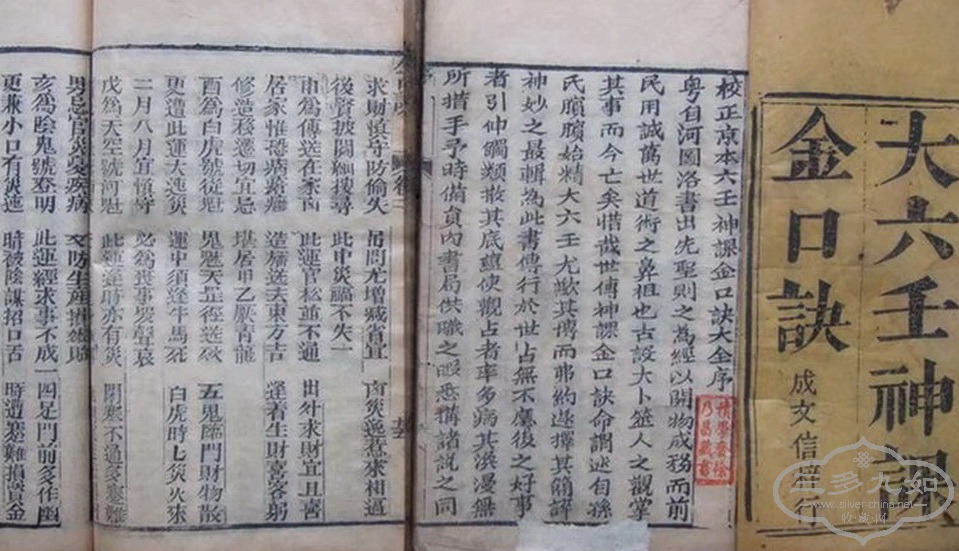 大六壬神課
金口訣
成文信
校正京本六壬神課金口訣大全序
粵自河圖洛書出先聖則之為經以開物成務而前
民用誠萬世道術之鼻祖也古設大卜筮人之觀掌
其事而今亡矣惜哉世傳神課金口訣命謂述自孫
氏臏臏始精大六壬尤歉其博而弗約遂擇其簡評
神妙之最輯為此書傳行於世占無不應後之好事
者引伸觸類散其底蘊使觀占者率多病其洪漫無
所措手予時備員內書局供職之暇悉搆諸說之同
積學齋徐
乃昌藏書
求財慎守防偷失 吊問尤增 省宜 南災逸惹來相逼
後賢披閱細搜尋 此中災福不失一
申為傳送在家南 此運官松並不通 田外求財宜且喜
居家惟恐病瘡 造屋送去東方吉 逢着生財喜客躬
修造移遷切宜忌 堪居甲乙厭青龍
酉為白虎號從魁 鬼魁天罡徑送災 五鬼臨門財物散
更遭此運大連災 運中須逢牛馬死 白虎時七災火來
二月八月宜慎守 必為喪事哭聲哀
戊為天空號河魁 此運逢時亦有災 閉寒不通多蹇難
男忌官災憂疾病 女防生產損
亥為陰鬼號登明 此運經求事不成 四足門前多作幽
更兼小口有災迍 暗被陰謀招口舌 時遭蹇難損資金
三多九如
www.silver-china.com
收·藏·网